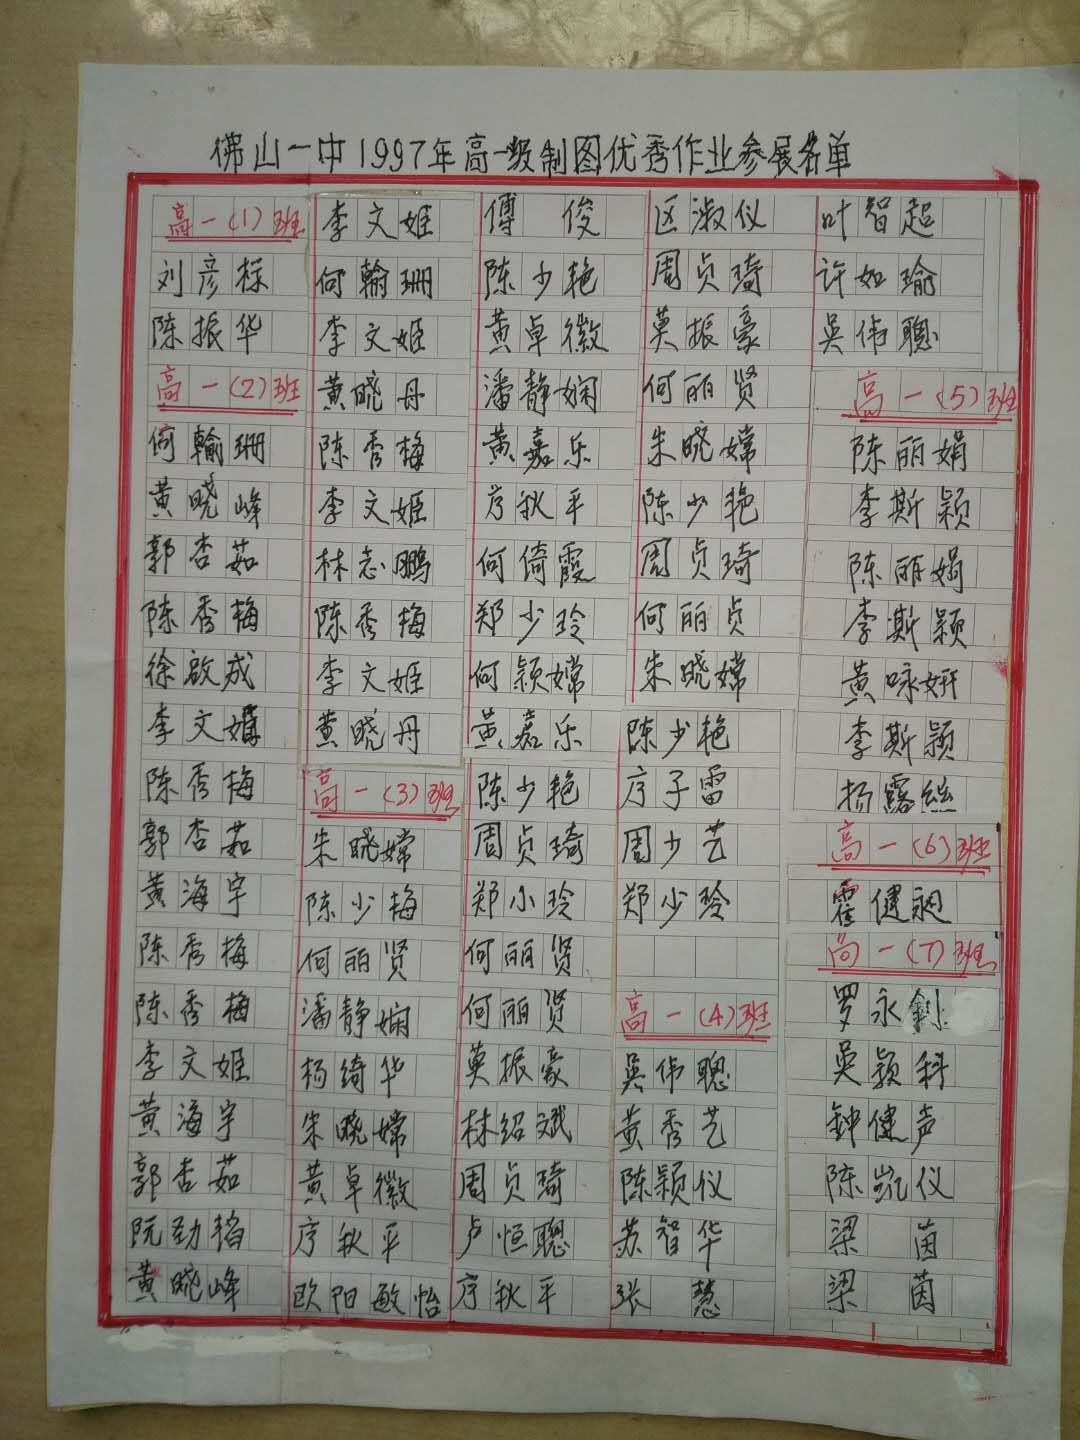 佛山一中1997年高一级制图优秀作业参展名单
高一(1)班
刘彦樑
陈振华
高一(2)班
何翰珊
黄晓峰
郭杏茹
陈秀梅
徐啟成
李文媾
陈秀梅
郭杏茹
黄海宇
陈秀梅
陈秀梅
李文姬
黄海宇
郭杏茹
阮劲韬
黄晓峰
李文姬
何翰珊
李文姬
黄晓丹
陈秀梅
李文姬
林志鹏
陈秀梅
李文姬
黄晓丹
高一(3)班
朱晓嫦
陈少梅
何丽贤
潘静娴
杨绮华
朱晓嫦
黄卓徽
序秋平
欧阳敏怡
傅俊
陈少艳
黄卓徽
潘静娴
黄嘉乐
序秋平
何倚霞
郑少玲
何颖嫦
黄嘉乐
陈少艳
周贞琦
郑小玲
何丽贤
何丽贤
莫振豪
林绍斌
周贞琦
卢恒聪
序秋平
区淑仪
周贞琦
莫振豪
何丽贤
朱晓嫦
陈少艳
周贞琦
何丽贞
朱晓嫦
陈少艳
序子雷
周少艺
郑少玲
高一(4)班
吴伟聪
黄秀艺
陈颖仪
苏智华
张慧
叶智超
许如瑜
吴伟聪
高一(5)班
陈丽娟
李斯颖
陈丽娟
李斯颖
黄咏妍
李斯颖
杨露丝
高一(6)班
霍健昶
高一(7)班
罗永钊
吴颖科
钟健声
陈凯仪
梁茵
梁茵